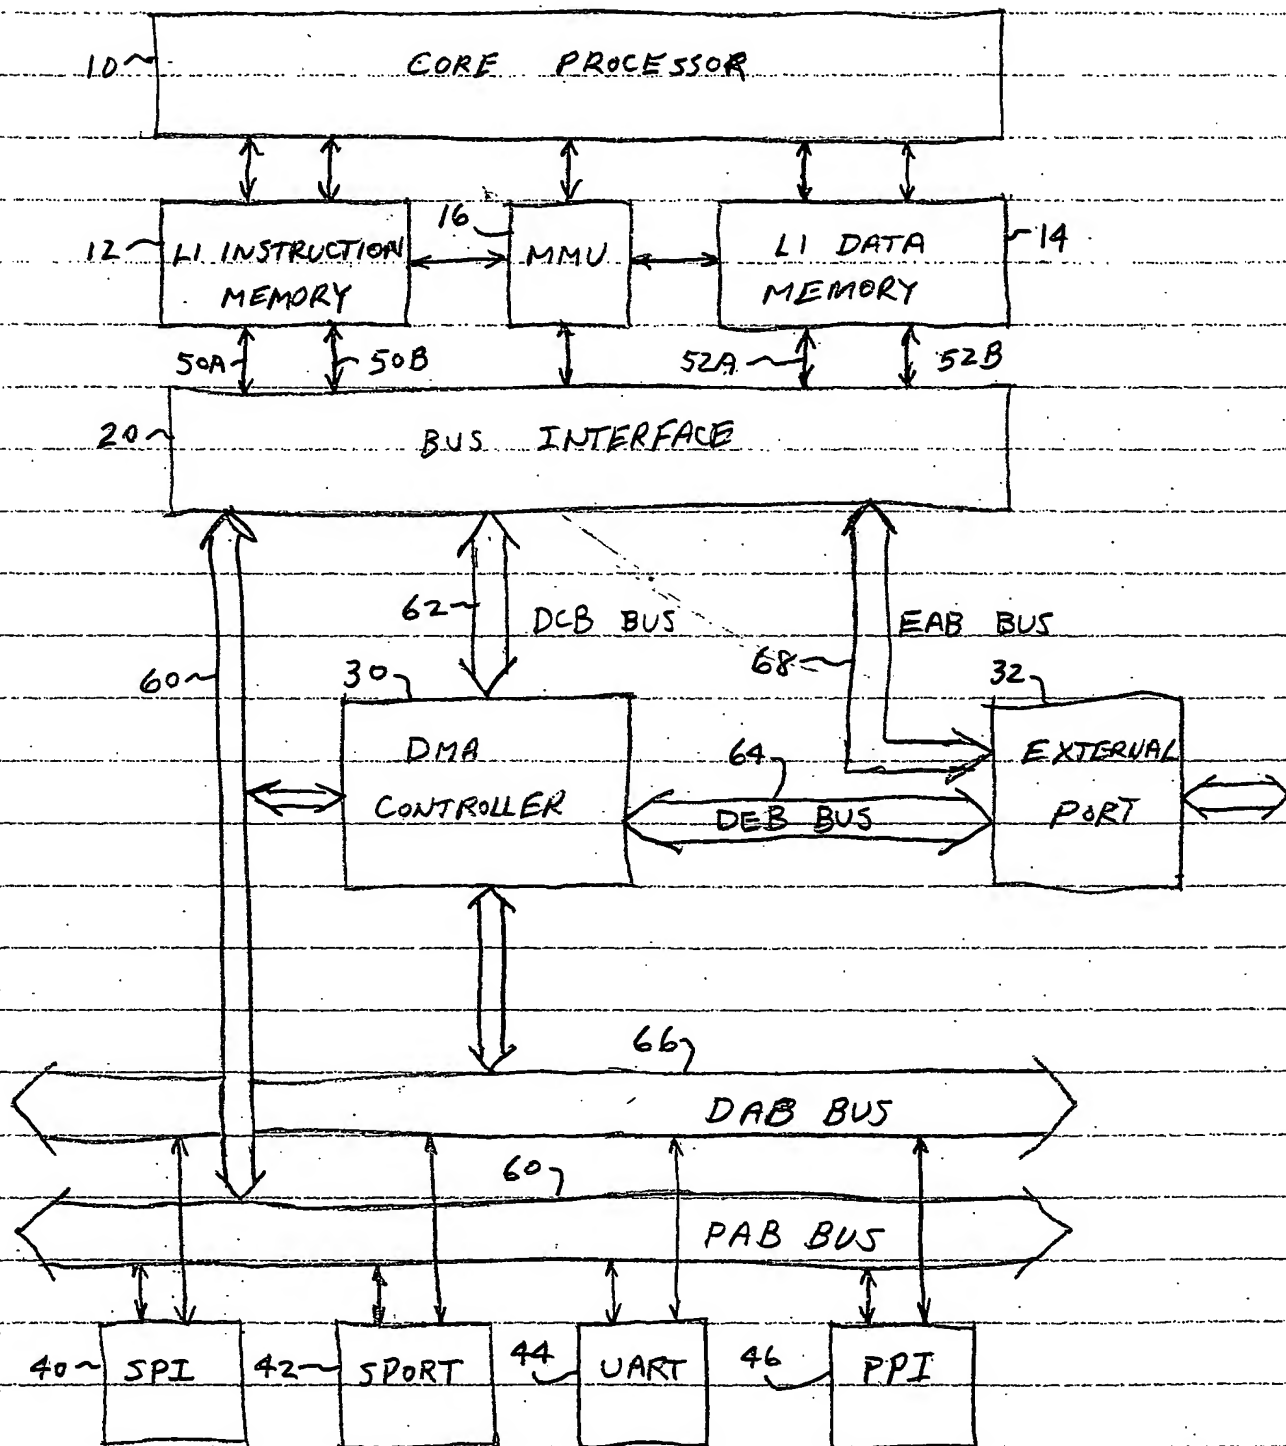 10 CORE PROCESSOR
12 L1 INSTRUCTION MEMORY
16 MMU
L1 DATA MEMORY 14
50A 50B 52A 52B
20 BUS INTERFACE
62 DCB BUS
EAB BUS
60 30 68 32
DMA CONTROLLER
64
DEB BUS
EXTERNAL PORT
66
DAB BUS
60
PAB BUS
40 SPI 42 SPORT 44 UART 46 PPI